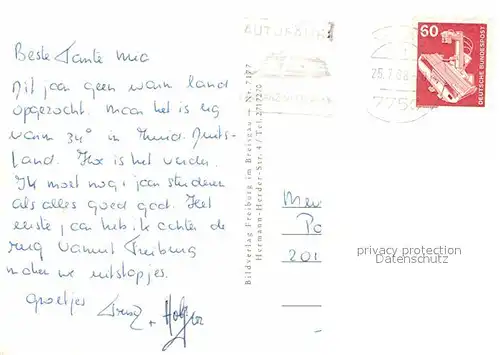 Beste Tante Mia
Dit jaar geen warm land
opgezocht. maar het is erg
warm 34° in Zuid. Duits-
land. Hoe is het verder.
Ik moet nog 1 jaar studeren
als alles goed gaat. Het
eerste jaar heb ik achter de
rug vanuit Freiburg
maken we uitstapjes.
groetjes
+ Holger
AUTOFÄHRE
25.7.88
775
60
DEUTSCHE BUNDESPOST
Bildverlag Freiburg im Breisgau — Nr. 7177
Hermann-Herder-Str. 4 / Tel.
Mev
Po
201
privacy protection
Datenschutz